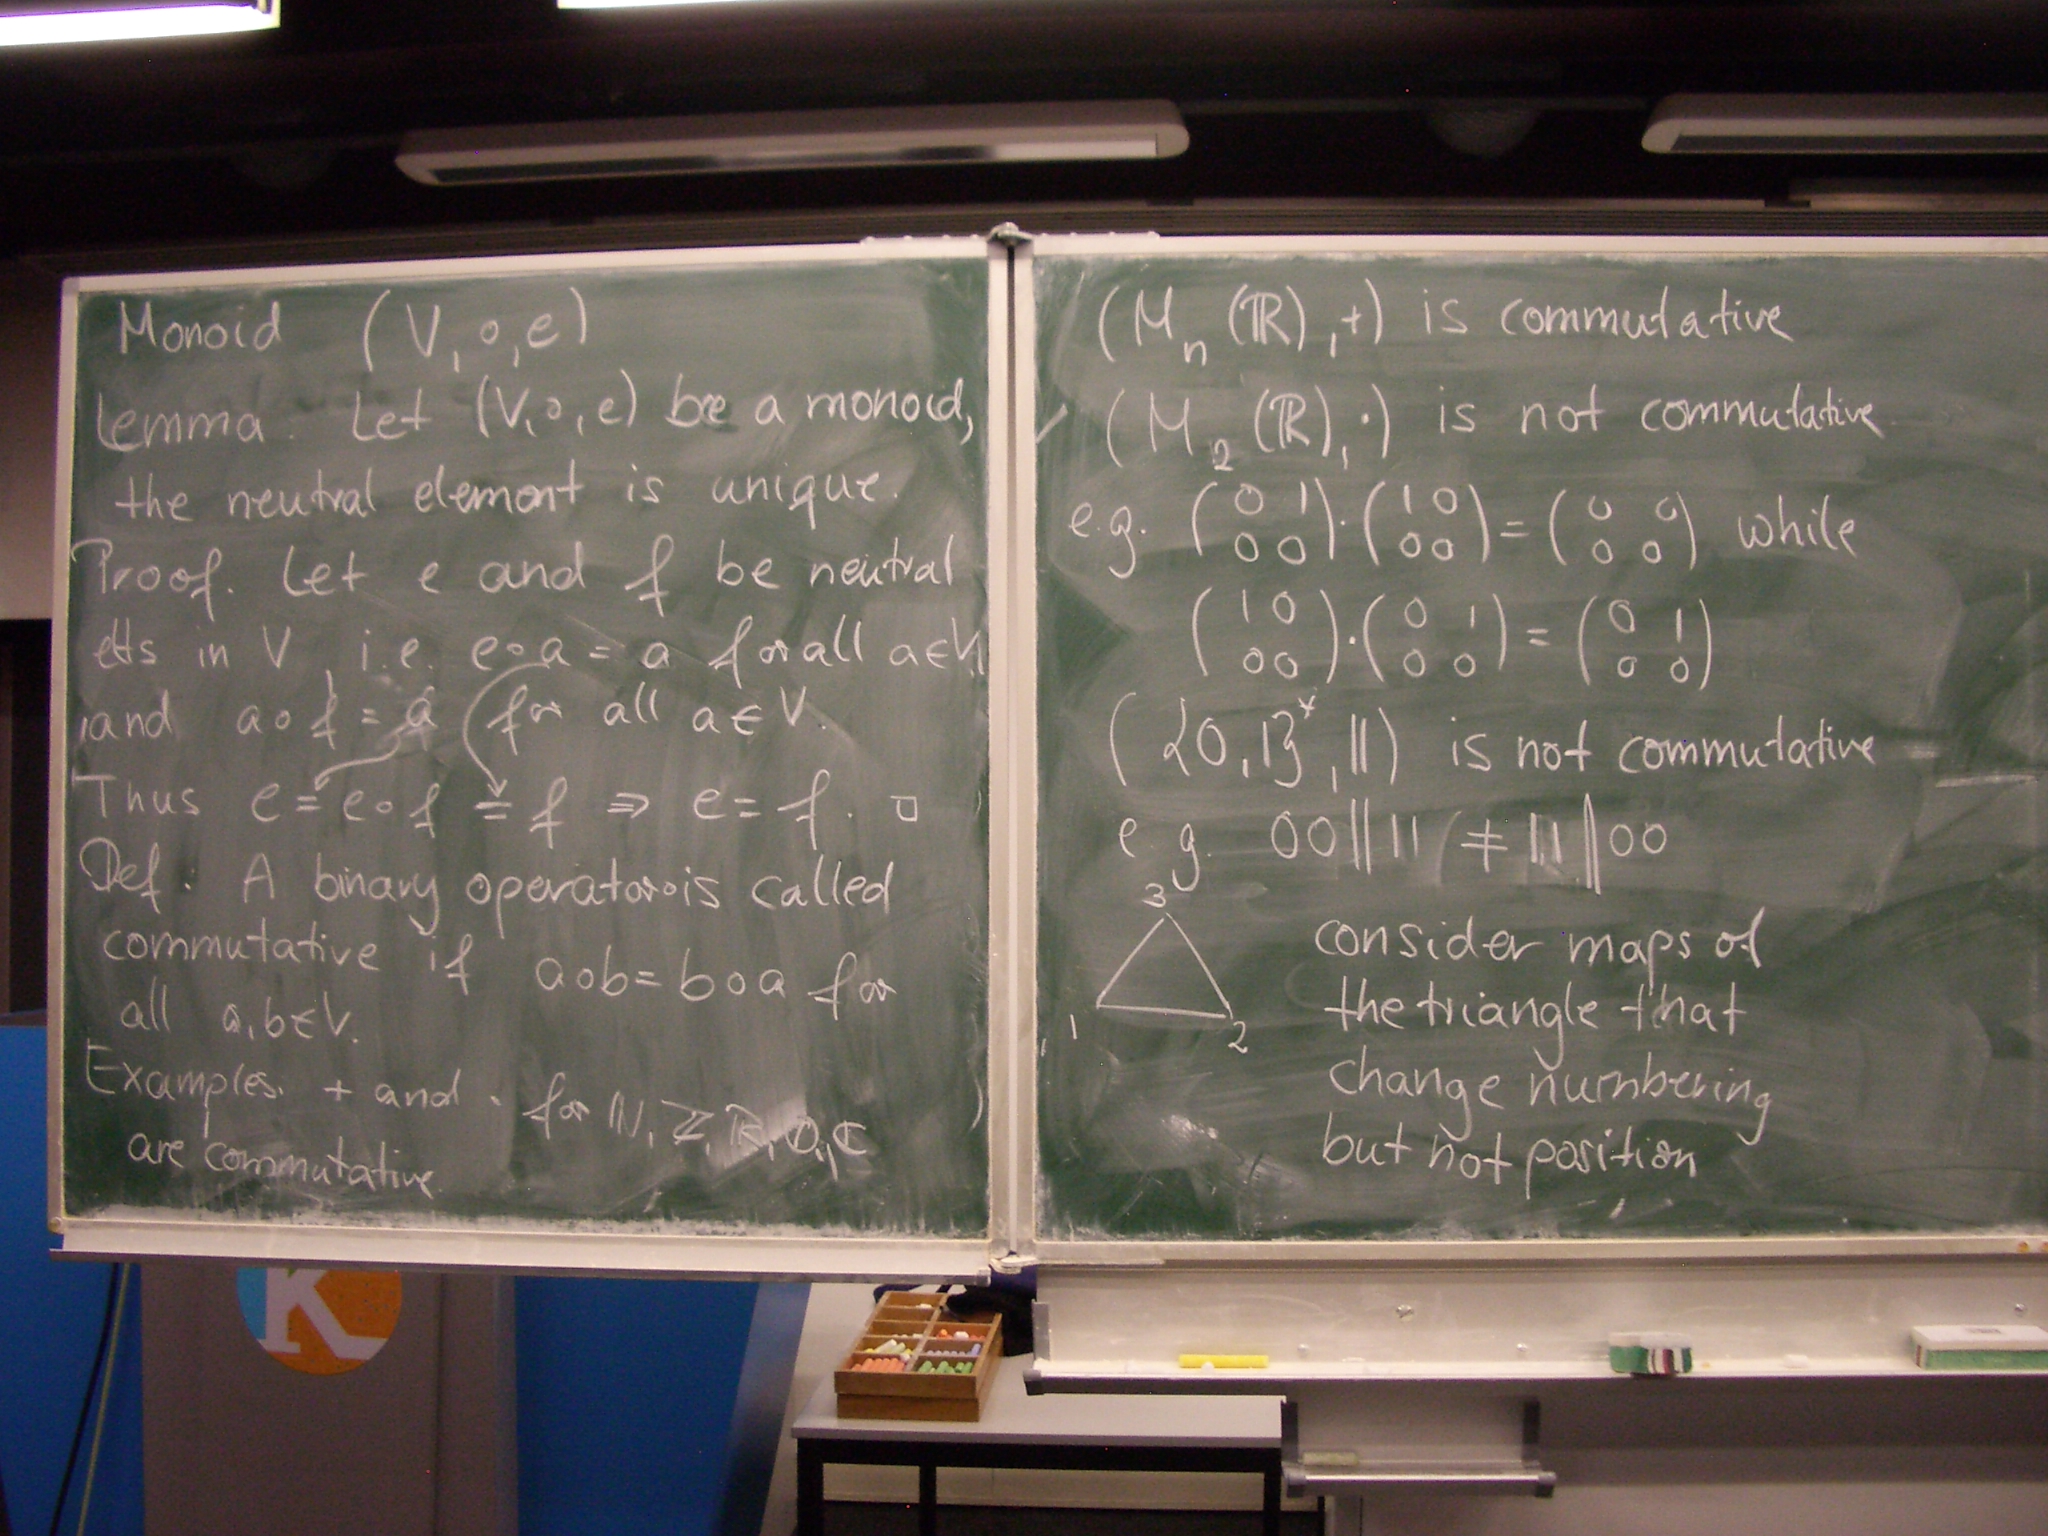 Monoid (V, ∘, e)
Lemma. Let (V, ∘, e) be a monoid,
the neutral element is unique.
Proof. Let e and f be neutral
elts in V, i.e. e∘a = a for all a∈V,
and a∘f = a for all a∈V.
Thus e = e∘f = f ⇒ e = f. □
Def. A binary operator ∘ is called
commutative if a∘b = b∘a for
all a, b ∈ V.
Examples. + and · for ℕ, ℤ, ℝ, ℚ, ℂ
are commutative
(M_n (ℝ), +) is commutative
(M_2 (ℝ), ·) is not commutative
e.g. (0 1 / 0 0) · (1 0 / 0 0) = (0 0 / 0 0) while
(1 0 / 0 0) · (0 1 / 0 0) = (0 1 / 0 0)
({0,1}*, ||) is not commutative
e.g. 00 || 11 ≠ 11 || 00
3
1 2
consider maps of
the triangle that
change numbering
but not position
K